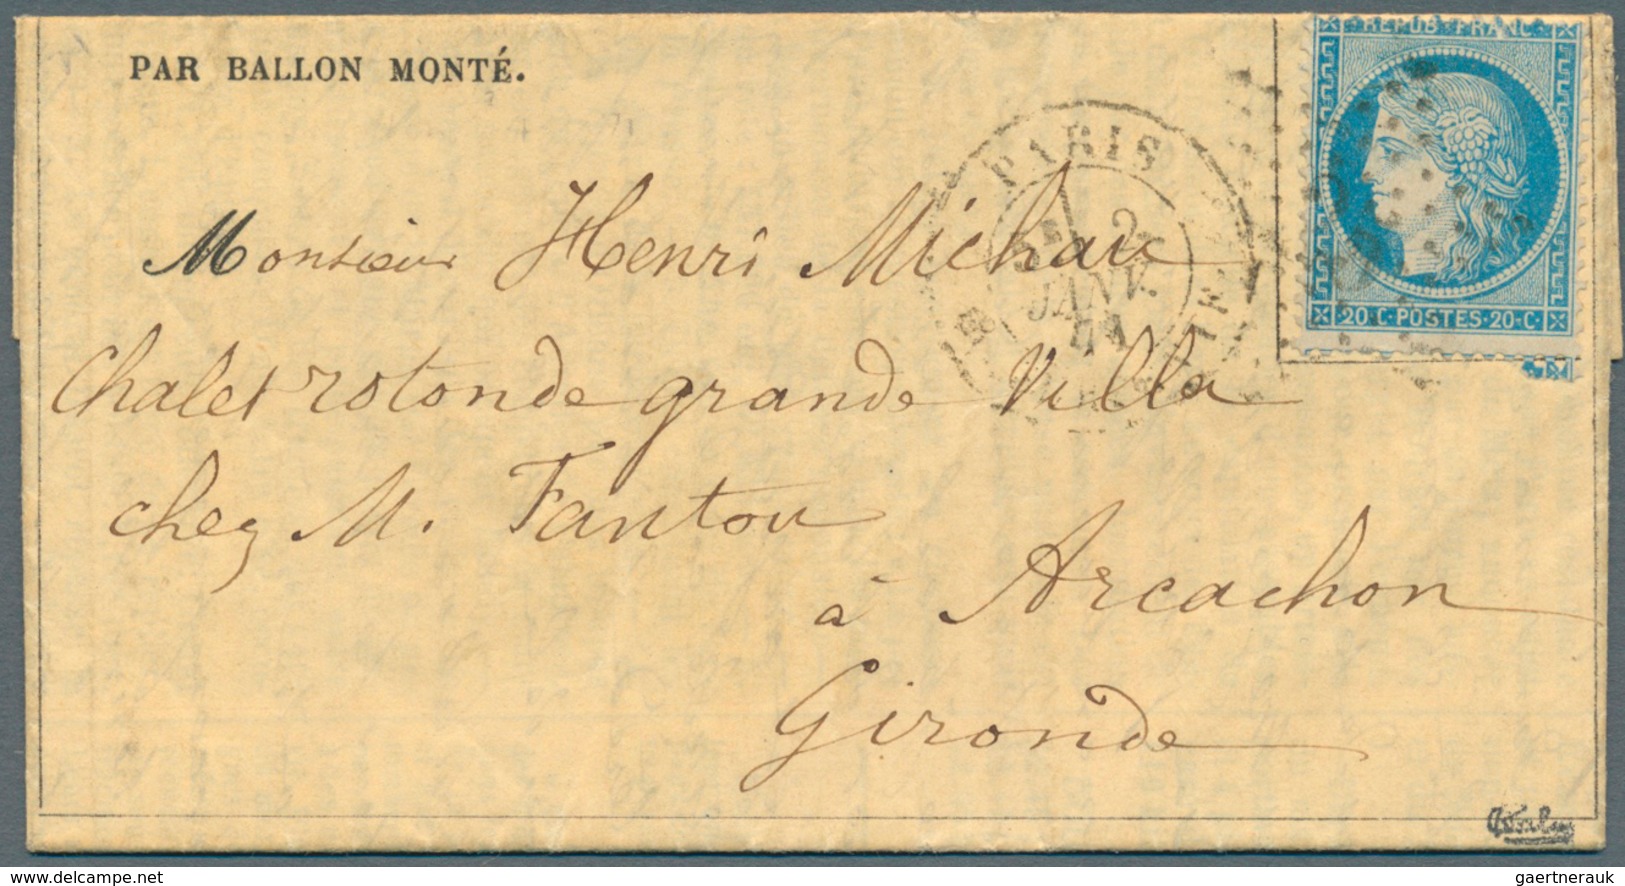 PAR BALLON MONTÉ.
REPUB·FRANC·
20·C·POSTES·20·C·
PARIS
2
JANV.
Monsieur Henri Michau
Chalet rotonde grande Villa
chez M. Fantou
à Arcachon
Gironde
delcampe.net
gaertnerauk